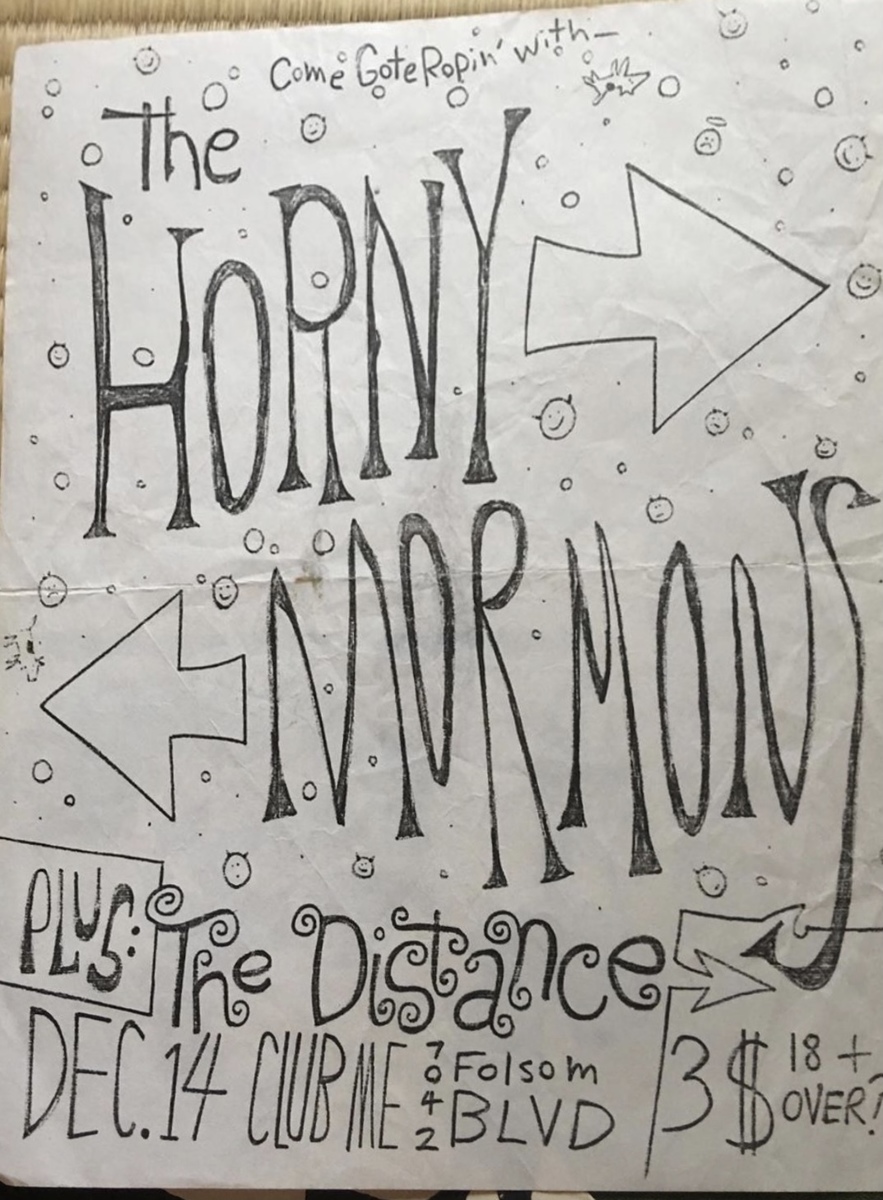 Come Gote Ropin' with—
The
HORNY
MORMONS
PLUS:
The Distance
DEC. 14 CLUB ME 7042 Folsom BLVD
3$ 18 + OVER?